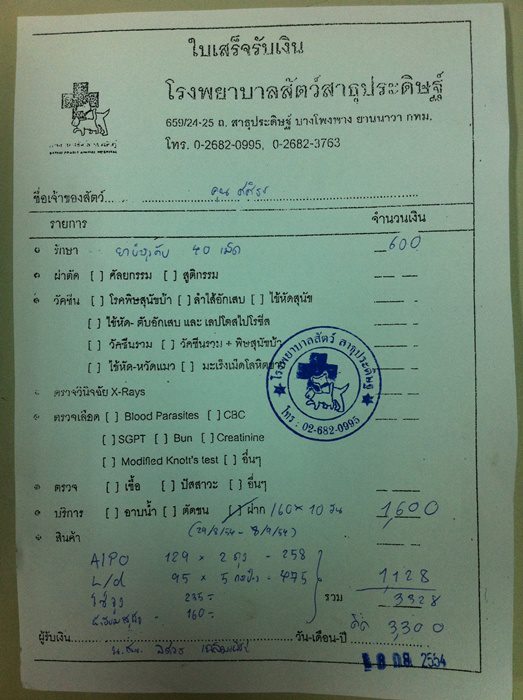 ใบเสร็จรับเงิน
โรงพยาบาลสัตว์สาธุประดิษฐ์
659/24-25 ถ. สาธุประดิษฐ์ บางโพงพาง ยานนาวา กทม.
โทร. 0-2682-0995, 0-2682-3763
ชื่อเจ้าของสัตว์ คุณ
รายการ จำนวนเงิน
รักษา 40 เม็ด 600
ผ่าตัด [ ] ศัลยกรรม [ ] สูติกรรม
วัคซีน [ ] โรคพิษสุนัขบ้า [ ] ลำไส้อักเสบ [ ] ไข้หัดสุนัข
[ ] ไข้หัด- ตับอักเสบ และ เลปโตสไปโรซีส
[ ] วัคซีนรวม [ ] วัคซีนรวม + พิษสุนัขบ้า
[ ] ไข้หัด-หวัดแมว [ ] มะเร็งเม็ดโลหิตขาว
โรงพยาบาลสัตว์ สาธุประดิษฐ์
โทร: 02-682-0995
ตรวจวินิจฉัย X-Rays
ตรวจเลือด [ ] Blood Parasites [ ] CBC
[ ] SGPT [ ] Bun [ ] Creatinine
[ ] Modified Knott's test [ ] อื่นๆ
ตรวจ [ ] เชื้อ [ ] ปัสสาวะ [ ] อื่นๆ
บริการ [ ] อาบน้ำ [ ] ตัดขน [/] ฝาก 160 × 10 วัน 1,600
สินค้า (29/8/54 - 8/9/54)
A/PO 129 × 2 ถุง = 258
L/d 95 × 5 กระป๋อง = 475 1,128
235-
รวม 3,328
160-
คิด 3,300
ผู้รับเงิน วัน-เดือน-ปี
2554